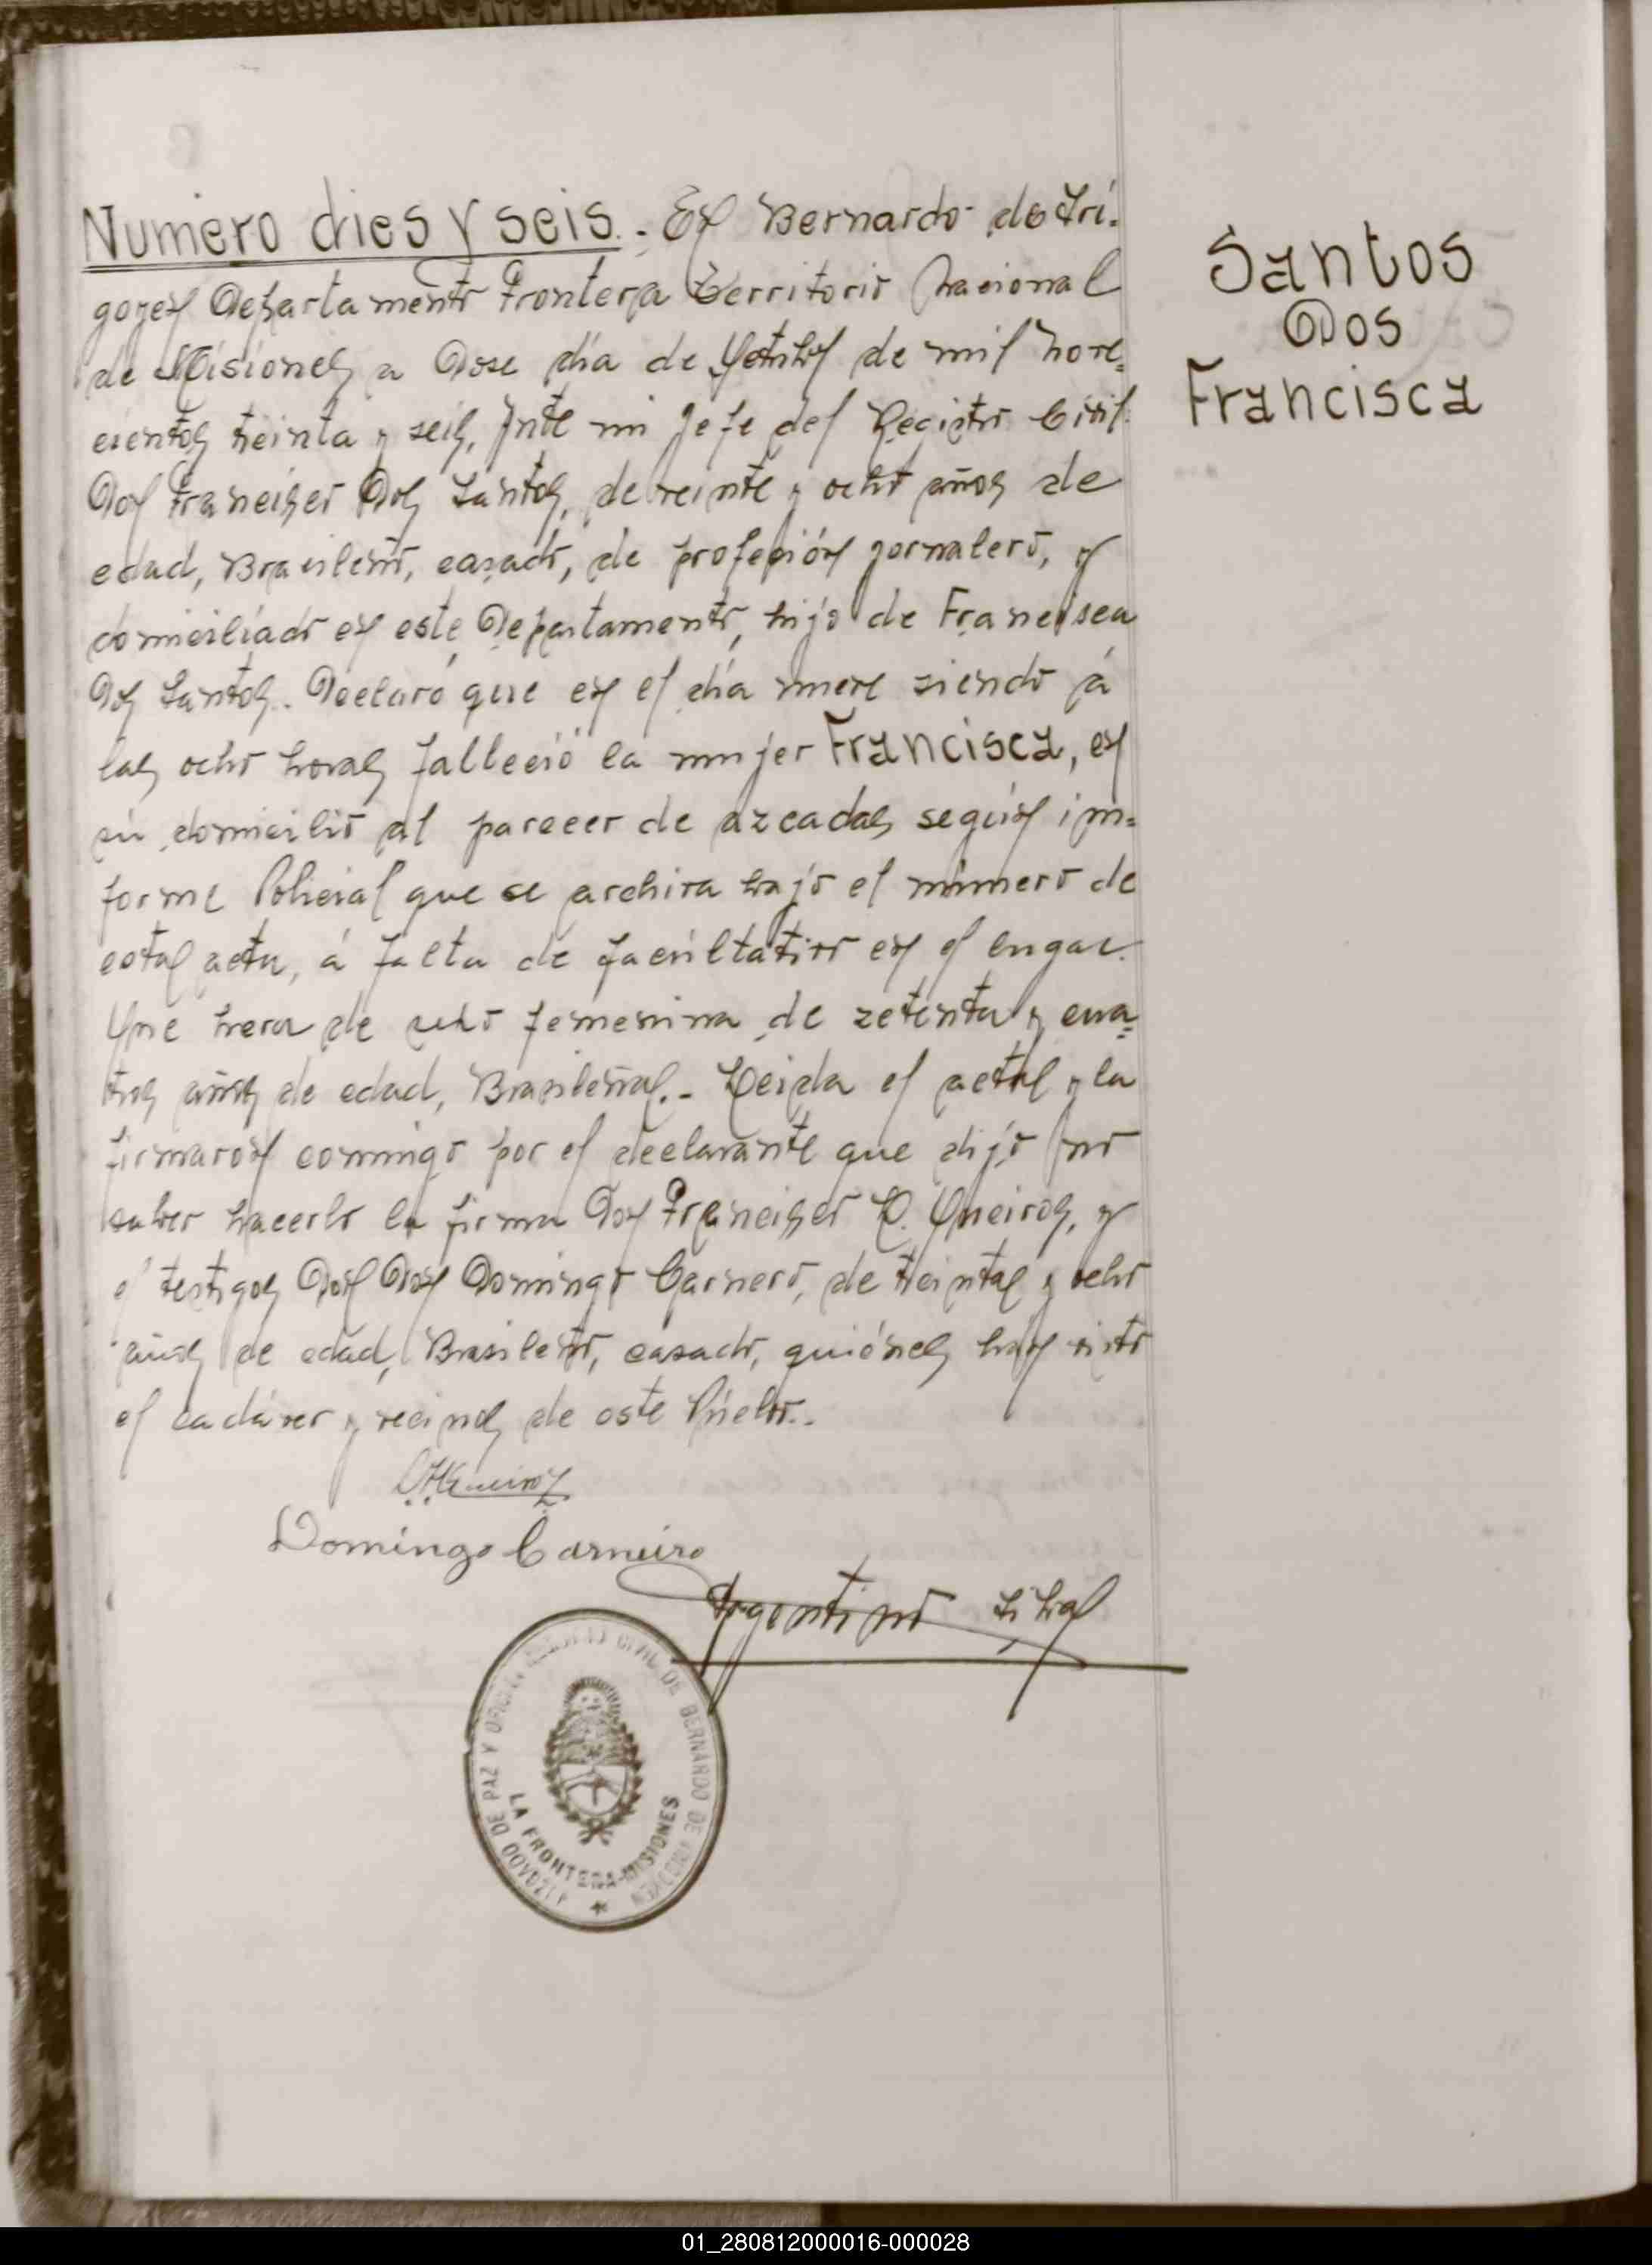 Numero dies y seis.- En Bernardo de Iri-
goyen Departamento Frontera Territorio Nacional
de Misiones a Dose día de de mil nove=
cientos treinta y seis, Ante mi Jefe del Registro Civil
Don Francisco Dos Santos, de veinte y ocho años de
edad, Brasileño, casado, de profeción jornalero, y
domiciliado en este Departamento, hijo de Francisca
Dos Santos. Declaró que en el día nueve siendo á
las ocho horas falleció la mujer Francisca, en
su domicilio al parecer de azcadas según im=
forme Policial que se archiva bajo el número de
esta acta, á falta de facúltativo en el lugar.
Que hera de sexo femenina de zetenta y cua=
tros años de edad, Brasileña.- Leida el acta y la
firmaron comnigo por el declarante que dijo no
saber hacerlo la firma Don Francisco Queiros, y
el testigos Don Don Domingo Carnero, de treinta y ocho
años de edad, Brasileño, casado, quiénes han visto
el cadáver y vecinos de este Púeblo..
Santos
Dos
Francisca
Domingo Carneiro
Argentino
JUZGADO DE PAZ Y OFICINA REGISTRO CIVIL DE BERNARDO DE IRIGOYEN
LA FRONTERA-MISIONES
01_280812000016-000028